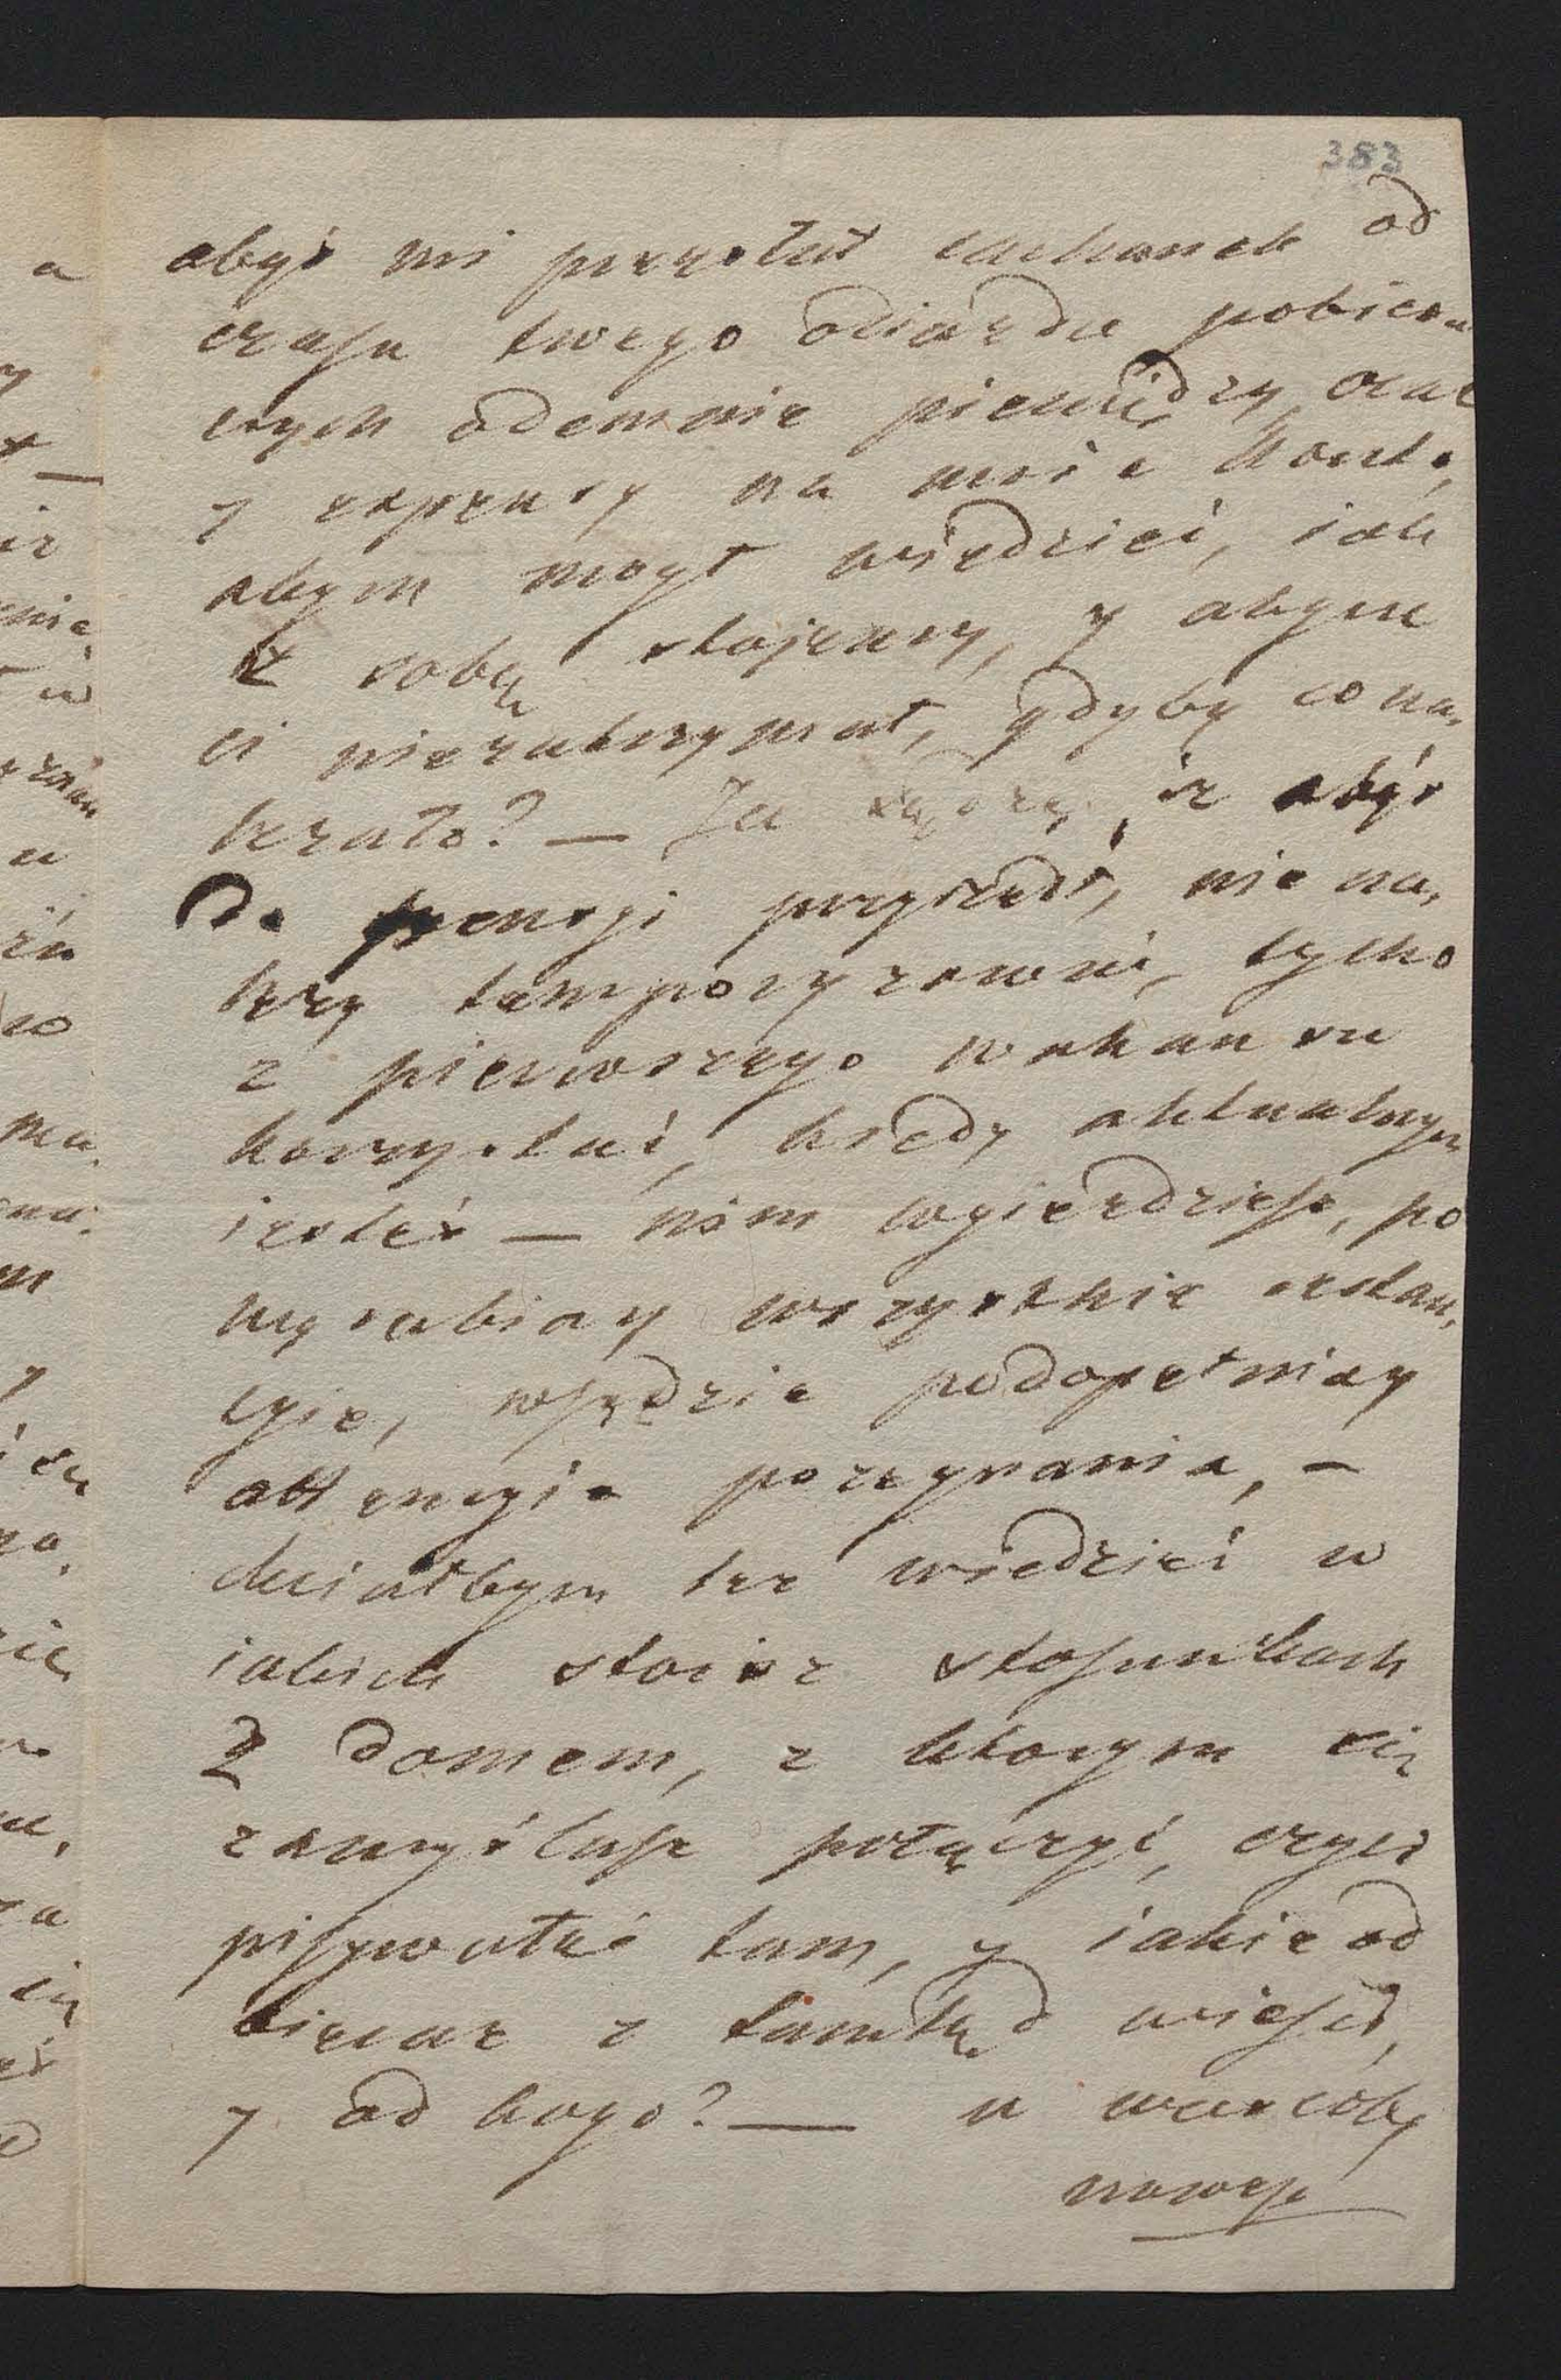 383
abyś mi przysłał rachunek od
czasu twego odiazdu pobiera
nych odemnie pieniędzy, oraz
y expensy na moie konto,
abym mogł wiedzieć, iak
z sobą stojemy, y abym
ci niezatrzymał, gdyby co na,
leżało? — Ja sądzę, iż abyś
do pensji przyszedł, nie na,
leży temporyzować, tylko
z pierwszego wakansu
korzystać, kiedy aktualnym
iesteś — nim wyiezdziesz, po
wyrabiay wszystkie
cyie, wszędzie podopełniay
attencyie pożegnania, —
chciałbym też wiedzieć w
iakich stoisz stosunkach
z domem, z ktorym się
zamyślasz połączyć, czyli
pisywałeś tam, y iakie od
bierasz z tamtąd wieści,
y od kogo? — u was coby
nowego